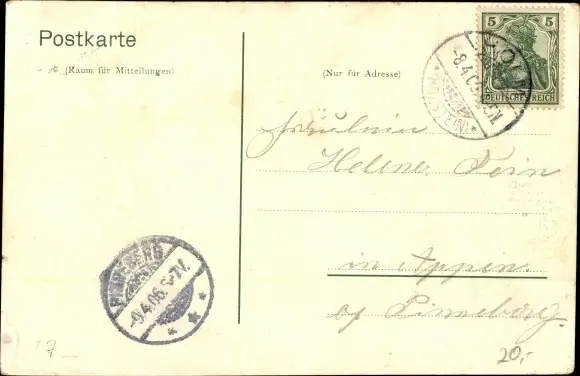 Postkarte
(Raum für Mitteilungen)
(Nur für Adresse)
5
DEUTSCHES REICH
-8.4.0
STEIN)
Fräulein
Helene
in Appen.
Pinneberg.
PINNEBERG
-9.4.06. 6-7V.
20,-